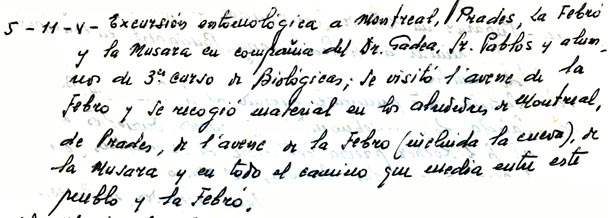 5-11-V- Excursión entomológica a Montreal, Prades, La Febró
y la Musara en compañia del Dr. Gadea, Sr. Pablos y alum-
nos de 3er curso de Biológicas; se visitó l'avenc de la
Febro y se recogio material en los alrededores de Montreal,
de Prades, de l'avenc de la Febro (incluida la cueva), de
la Musara y en todo el camino que media entre este
pueblo y la Febró.